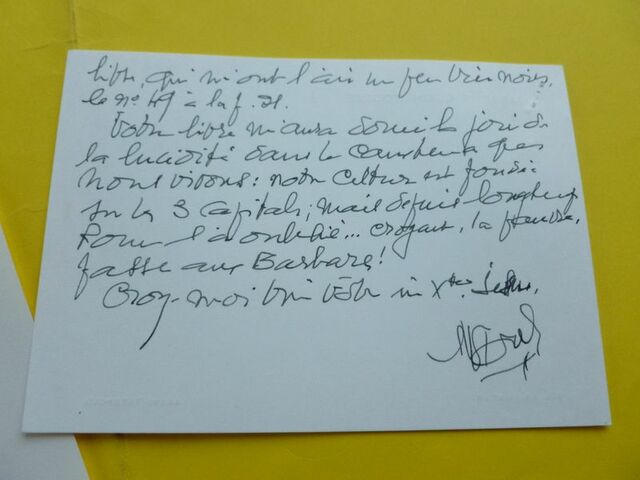 livre, qui m'ont l'air un peu bien noires,
le n° 49 à la p. 21.
Votre livre m'aura donné la joie de
la lucidité dans le cauchemar que
nous vivons: notre culture est fondée
sur les 3 capitales; mais depuis longtemps
Rome l'a oublié... croyant, la pauvre,
face aux Barbares!
Croyez-moi bien vôtre in Xto Jesu,